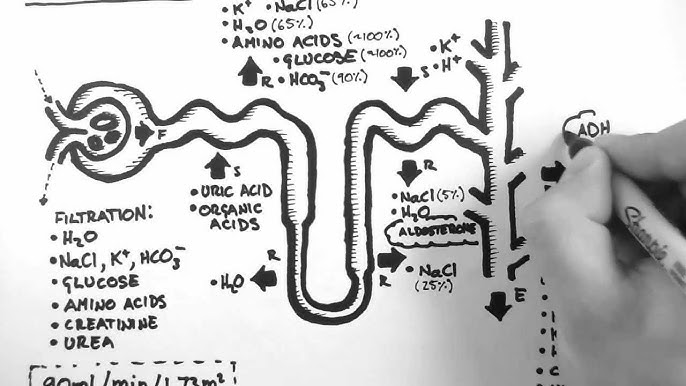 • K⁺ • NaCl (65%)
• H₂O (65%)
• AMINO ACIDS (~100%)
• GLUCOSE (~100%)
R • HCO₃⁻ (90%)
• K⁺
S • H⁺
F
ADH
S
• URIC ACID
• ORGANIC
ACIDS
R
• NaCl (5%)
• H₂O
ALDOSTERONE
FILTRATION:
• H₂O
• NaCl, K⁺, HCO₃⁻
• GLUCOSE
• AMINO ACIDS
• CREATININE
• UREA
R
• H₂O
R
• NaCl
(25%)
E
90ml/min/1.73m²
Sharpie